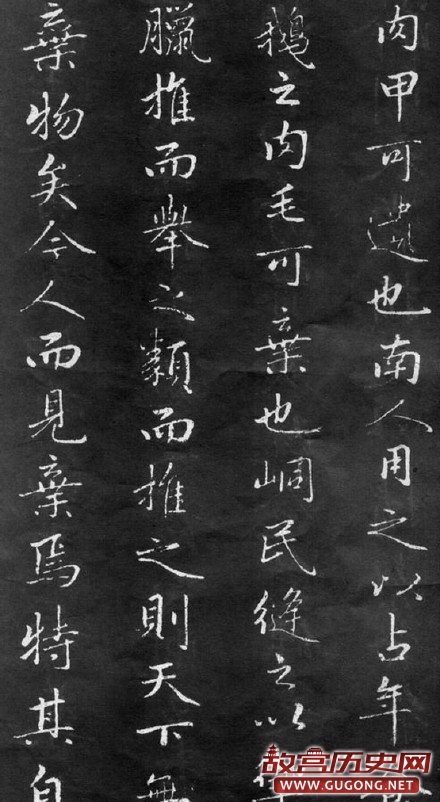 肉甲可遺也南人用之以占年
鵝之肉毛可棄也峒民縫之以
臘推而舉之類而推之則天下無
棄物矣今人而見棄焉特其自
故宫历史网
WWW.GUGONG.NET